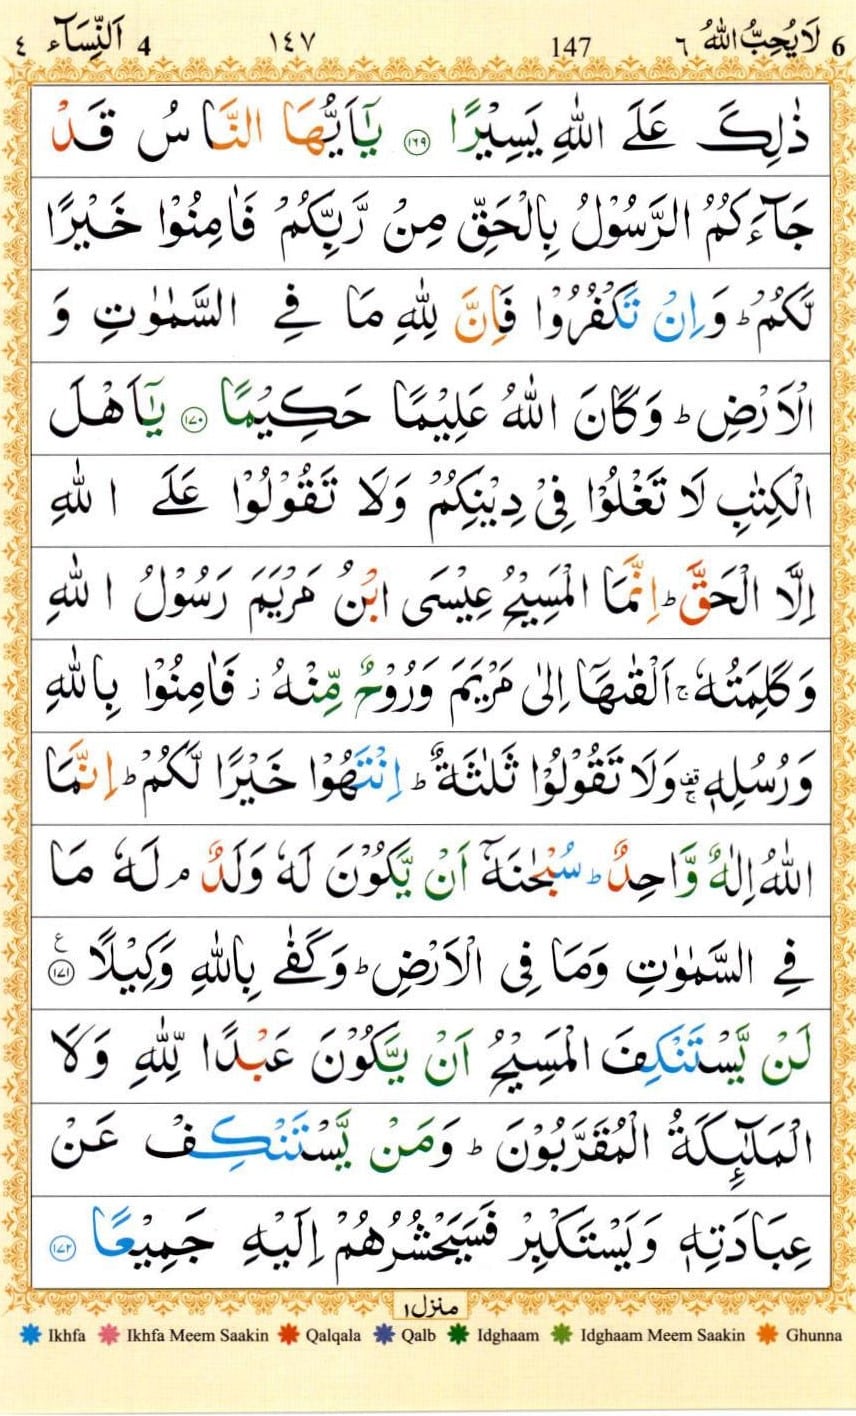 ٤ اَلنِّسَآء 4 ١٤٧ 147 لَا يُحِبُّ اللّٰهُ ٦ 6
ذٰلِكَ عَلَى اللّٰهِ يَسِيْرًا ۝١٦٩ يٰۤاَيُّهَا النَّاسُ قَدْ
جَآءَكُمُ الرَّسُوْلُ بِالْحَقِّ مِنْ رَّبِّكُمْ فَاٰمِنُوْا خَيْرًا
لَّكُمْ ؕ وَاِنْ تَكْفُرُوْا فَاِنَّ لِلّٰهِ مَا فِي السَّمٰوٰتِ وَ
الْاَرْضِ ؕ وَكَانَ اللّٰهُ عَلِيْمًا حَكِيْمًا ۝١٧٠ يٰۤاَهْلَ
الْكِتٰبِ لَا تَغْلُوْا فِيْ دِيْنِكُمْ وَلَا تَقُوْلُوْا عَلَى اللّٰهِ
اِلَّا الْحَقَّ ؕ اِنَّمَا الْمَسِيْحُ عِيْسَى ابْنُ مَرْيَمَ رَسُوْلُ اللّٰهِ
وَكَلِمَتُهٗ ۚ اَلْقٰىهَاۤ اِلٰى مَرْيَمَ وَرُوْحٌ مِّنْهُ ؗ فَاٰمِنُوْا بِاللّٰهِ
وَرُسُلِهٖ ۚ قف وَلَا تَقُوْلُوْا ثَلٰثَةٌ ؕ اِنْتَهُوْا خَيْرًا لَّكُمْ ؕ اِنَّمَا
اللّٰهُ اِلٰهٌ وَّاحِدٌ ؕ سُبْحٰنَهٗۤ اَنْ يَّكُوْنَ لَهٗ وَلَدٌ ۘ لَهٗ مَا
فِي السَّمٰوٰتِ وَمَا فِي الْاَرْضِ ؕ وَكَفٰى بِاللّٰهِ وَكِيْلًا ۝١٧١ ع
لَنْ يَّسْتَنْكِفَ الْمَسِيْحُ اَنْ يَّكُوْنَ عَبْدًا لِّلّٰهِ وَلَا
الْمَلٰٓئِكَةُ الْمُقَرَّبُوْنَ ؕ وَمَنْ يَّسْتَنْكِفْ عَنْ
عِبَادَتِهٖ وَيَسْتَكْبِرْ فَسَيَحْشُرُهُمْ اِلَيْهِ جَمِيْعًا ۝١٧٢
منزل ١
Ikhfa Ikhfa Meem Saakin Qalqala Qalb Idghaam Idghaam Meem Saakin Ghunna